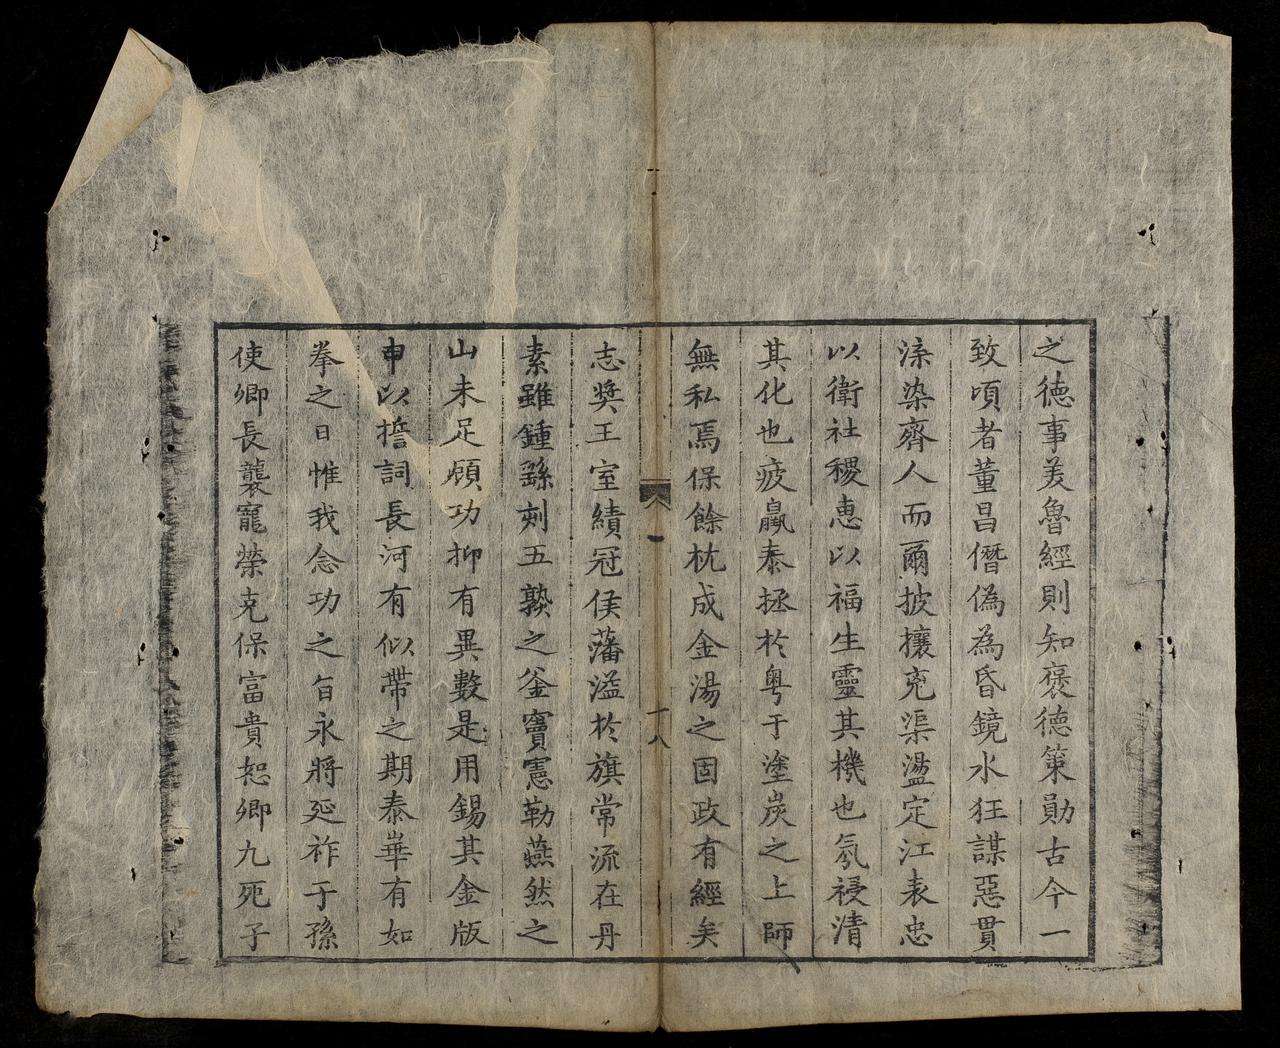 之德事美魯經則知褒德策勛古今一
致頃者董昌僭偽為昏鏡水狂謀惡貫
渿染齊人而爾披攘兇渠盪定江表忠
以衛社稷惠以福生靈其機也氛祲清
其化也疲羸泰拯於粤于塗炭之上師
無私焉保餘杭成金湯之固政有經矣
十八
志奬王室績冠侯藩溢於旗常流在丹
素雖鍾繇刻五熟之釜竇憲勒燕然之
山未足顧功抑有異數是用錫其金版
申以誓詞長河有似帶之期泰華有如
拳之日惟我念功之旨永將延祚于孫
使卿長襲寵榮克保富貴恕卿九死子